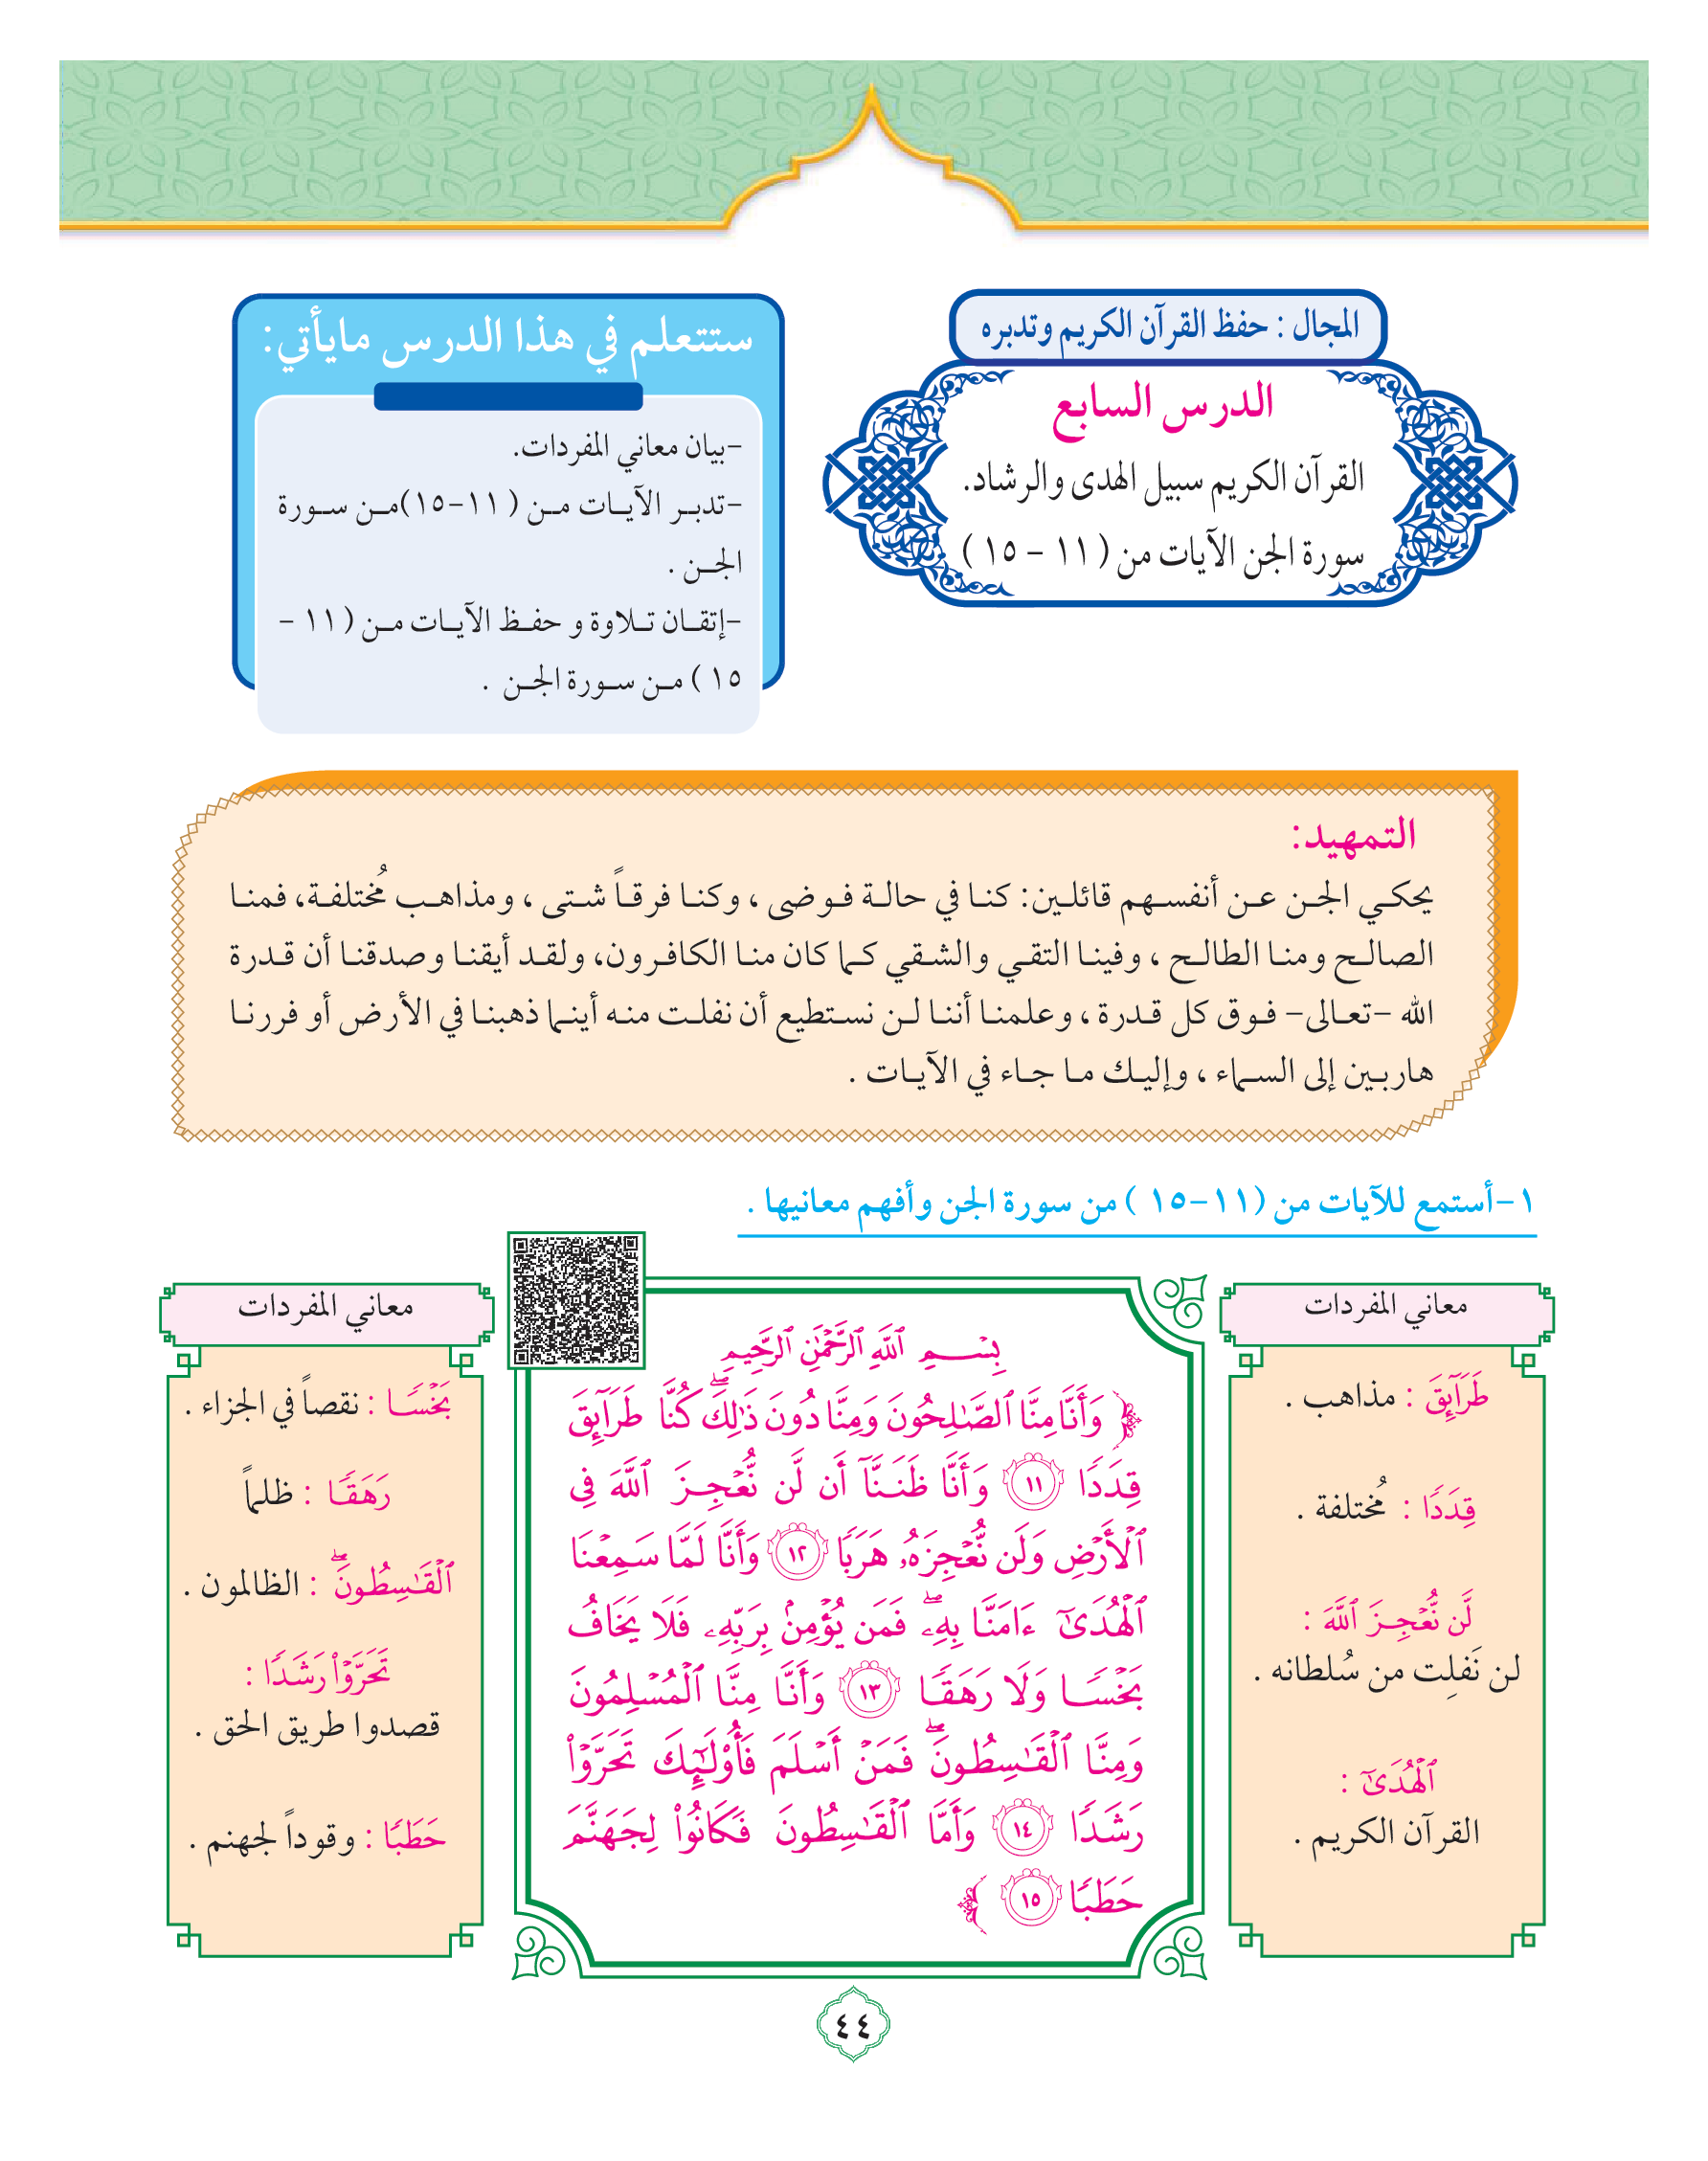 المجال : حفظ القرآن الكريم وتدبره
الدرس السابع
القرآن الكريم سبيل الهدى والرشاد.
سورة الجن الآيات من ( ١١ - ١٥ )
ستتعلم في هذا الدرس مايأتي:
-بيان معاني المفردات.
-تدبر الآيات من ( ١١-١٥)من سورة
الجن .
-إتقان تلاوة و حفظ الآيات من ( ١١ -
١٥ ) من سورة الجن .
التمهيد:
يحكي الجن عن أنفسهم قائلين: كنا في حالة فوضى ، وكنا فرقاً شتى ، ومذاهب مُختلفة، فمنا
الصالح ومنا الطالح ، وفينا التقي والشقي كما كان منا الكافرون، ولقد أيقنا وصدقنا أن قدرة
الله -تعالى- فوق كل قدرة ، وعلمنا أننا لن نستطيع أن نفلت منه أينما ذهبنا في الأرض أو فررنا
هاربين إلى السماء ، وإليك ما جاء في الآيات .
١-أستمع للآيات من (١١-١٥ ) من سورة الجن وأفهم معانيها .
معاني المفردات
طَرَآئِقَ : مذاهب .
قِدَدٗا : مُختلفة .
لَّن نُّعۡجِزَ ٱللَّهَ :
لن نَفلِت من سُلطانه .
ٱلۡهُدَىٰٓ :
القرآن الكريم .
بِسۡمِ ٱللَّهِ ٱلرَّحۡمَٰنِ ٱلرَّحِيمِ
﴿ وَأَنَّا مِنَّا ٱلصَّٰلِحُونَ وَمِنَّا دُونَ ذَٰلِكَۖ كُنَّا طَرَآئِقَ
قِدَدٗا ١١ وَأَنَّا ظَنَنَّآ أَن لَّن نُّعۡجِزَ ٱللَّهَ فِي
ٱلۡأَرۡضِ وَلَن نُّعۡجِزَهُۥ هَرَبٗا ١٢ وَأَنَّا لَمَّا سَمِعۡنَا
ٱلۡهُدَىٰٓ ءَامَنَّا بِهِۦۖ فَمَن يُؤۡمِنۢ بِرَبِّهِۦ فَلَا يَخَافُ
بَخۡسٗا وَلَا رَهَقٗا ١٣ وَأَنَّا مِنَّا ٱلۡمُسۡلِمُونَ
وَمِنَّا ٱلۡقَٰسِطُونَۖ فَمَنۡ أَسۡلَمَ فَأُوْلَٰٓئِكَ تَحَرَّوۡاْ
رَشَدٗا ١٤ وَأَمَّا ٱلۡقَٰسِطُونَ فَكَانُواْ لِجَهَنَّمَ
حَطَبٗا ١٥ ﴾
معاني المفردات
بَخۡسٗا : نقصاً في الجزاء .
رَهَقٗا : ظلماً
ٱلۡقَٰسِطُونَۖ : الظالمون .
تَحَرَّوۡاْ رَشَدٗا :
قصدوا طريق الحق .
حَطَبٗا : وقوداً لجهنم .
٤٤